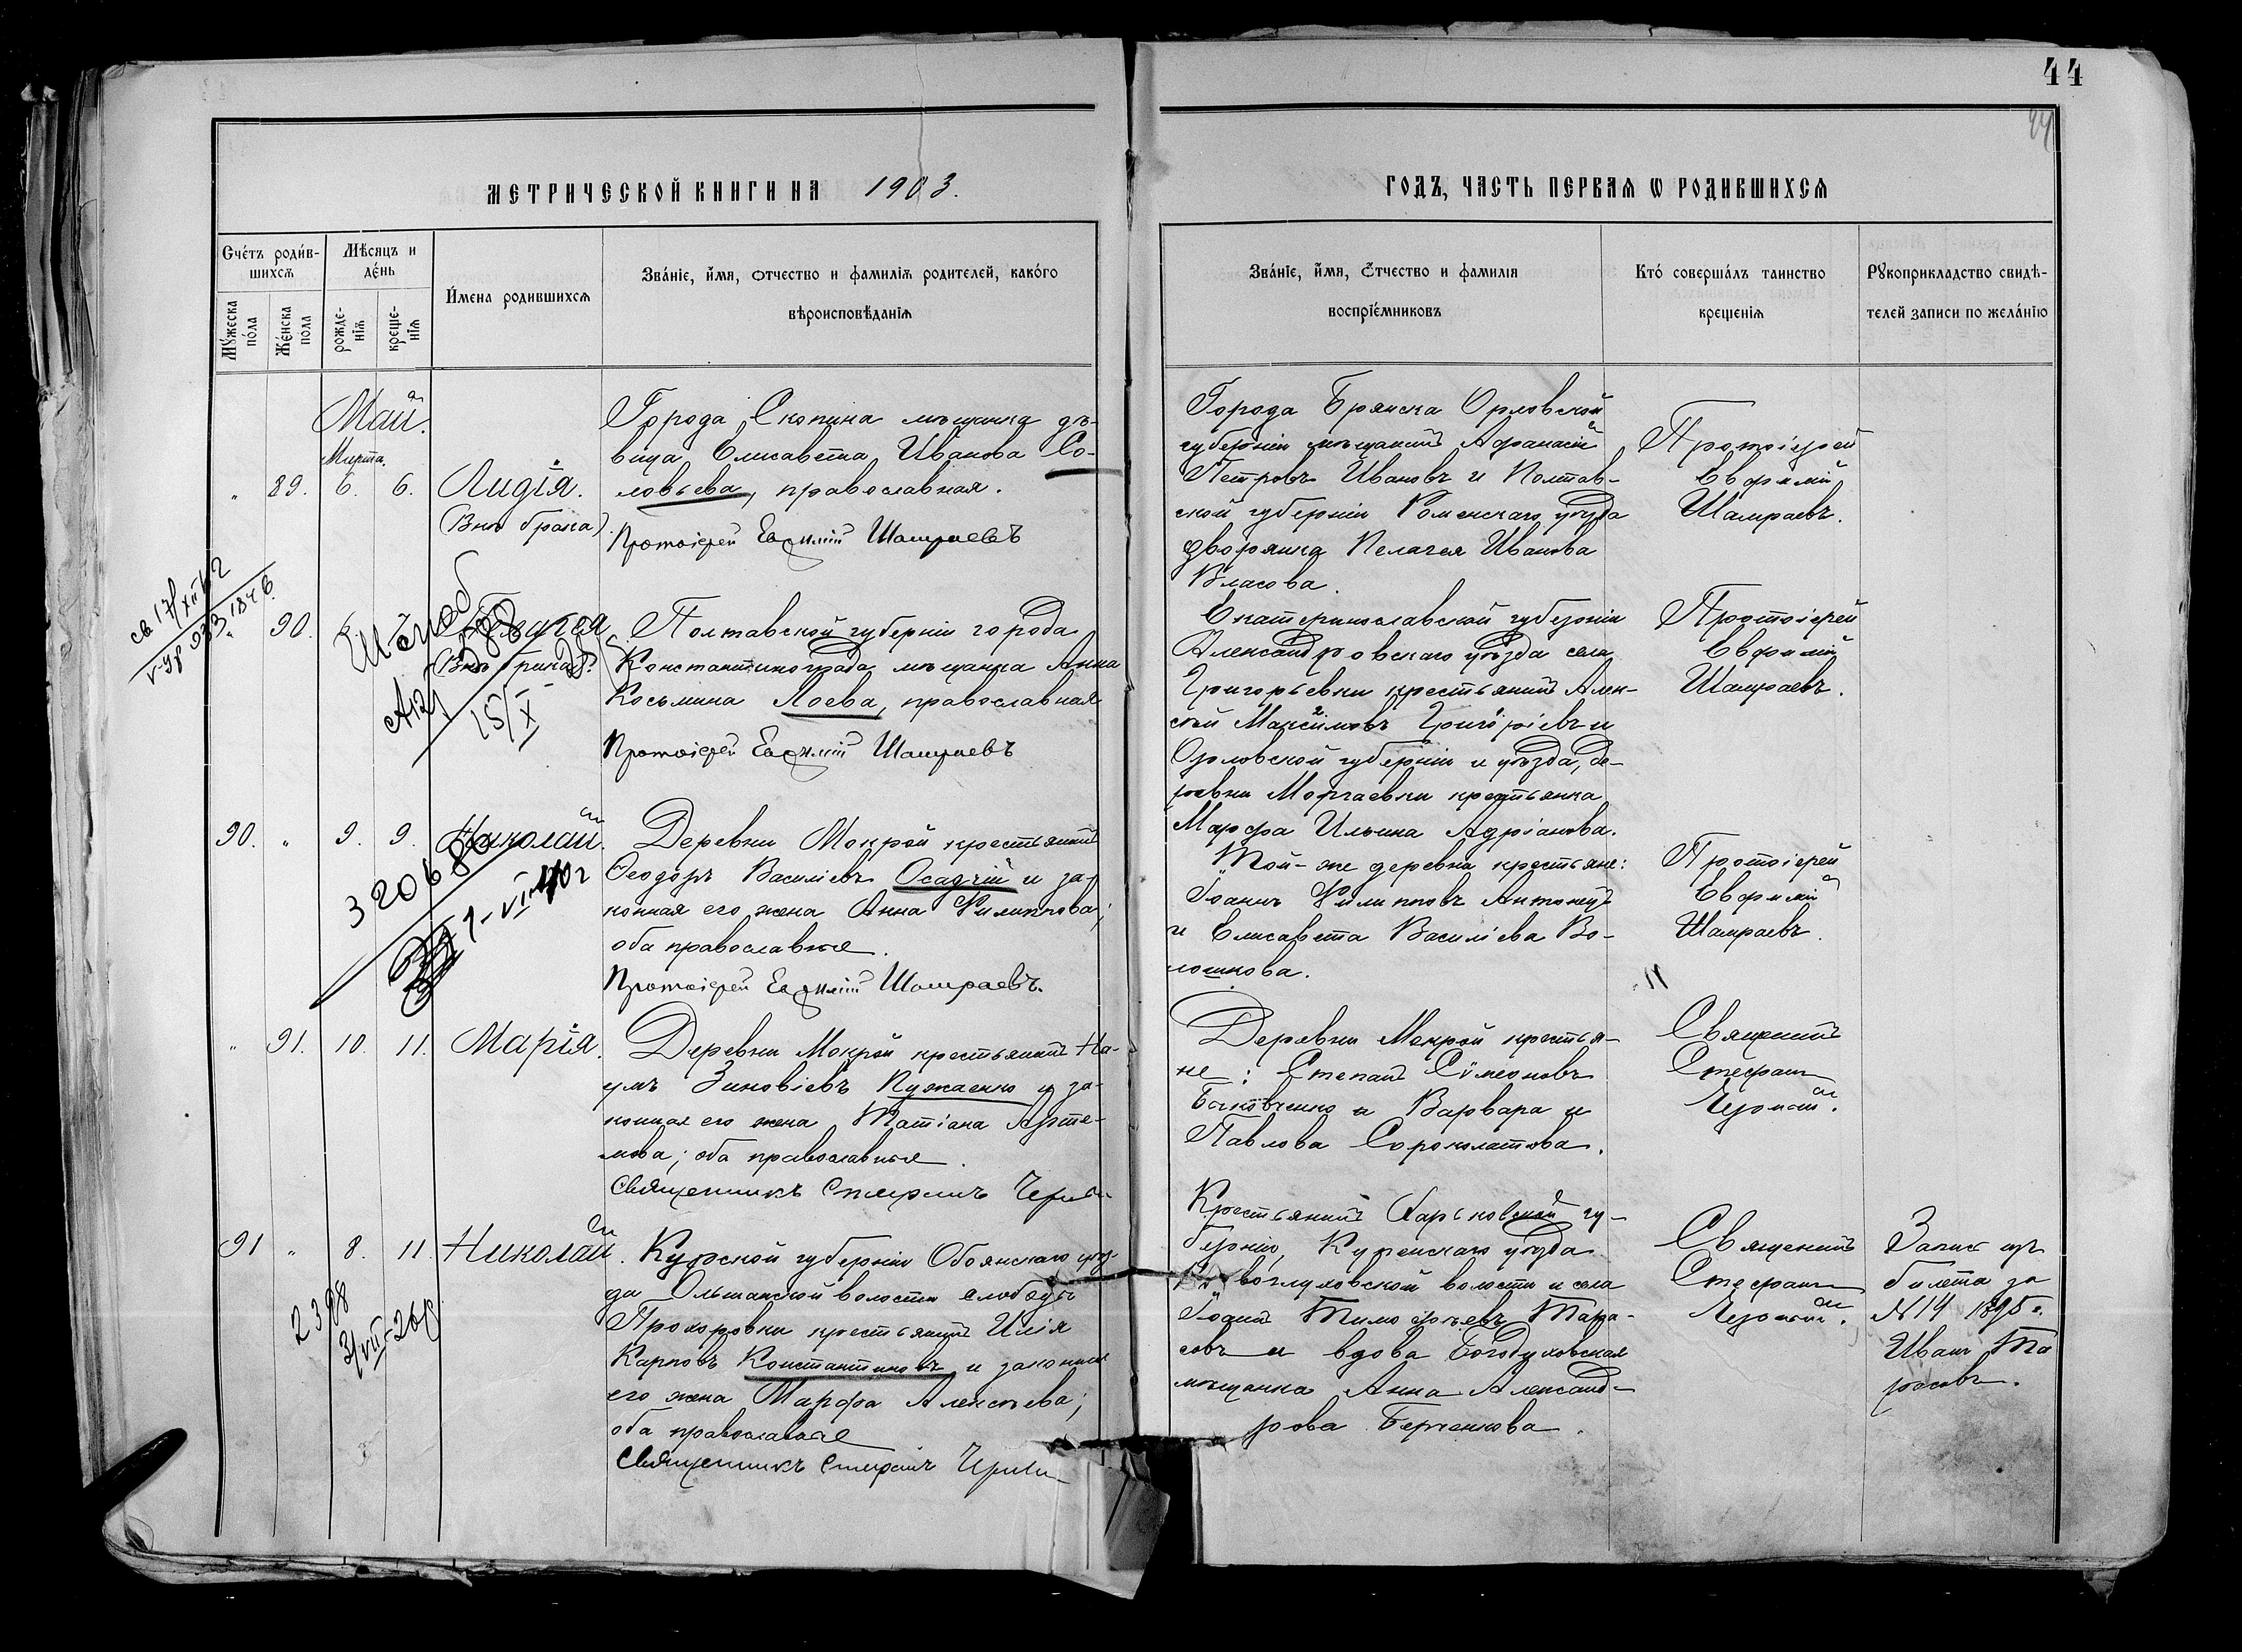 44
МЕТРИЧЕСКОЙ КНИГИ НА 1903.
ГОДЪ, ЧАСТЬ ПЕРВАѦ Ѡ РОДИВШИХСѦ
Счётъ родив-
шихсѧ
Мужеска пола
Женска пола
Мѣсяцъ и
день
рожде-
нїѧ
креще-
нїѧ
Имена родившихсѧ
Званїе, имя, отчество и фамилїѧ родителей, какого
вѣроисповѣданїѧ
Званїе, имя, отчество и фамилїя
воспрїемниковъ
Кто совершалъ таинство
крещенїѧ
Рукоприкладство свидѣ-
телей записи по желанїю
Май.
Марта.
" 89. 6. 6. Лидія.
(Внѣ брака)
Города Скопина мѣщанка дѣ-
вица Елисавета Иванова Со-
ловьева, православная.
Протоіерей Евфимій Шамраевъ
Города Брянска Орловской
губерніи мѣщанинъ Афанасій
Петровъ Ивановъ и Полтав-
ской губерніи Роменскаго уѣзда
дворянка Пелагея Иванова
Власова.
Протоіерей
Евфимій
Шамраевъ.
" 90.
Внѣ брака
15/X
Полтавской губерніи города
Константинограда мѣщанка Анна
Косьмина Лоева, православная
Протоіерей Евфимій Шамраевъ
Екатеринославской губерніи
Александровскаго уѣзда села
Григорьевки крестьянинъ Алек-
сѣй Максимовъ Григоріевъ и
Орловской губерніи и уѣзда, де-
ревни Моргаевки крестьянка
Марфа Ильина Адріанова.
Протоіерей
Евфимій
Шамраевъ.
90. " 9. 9. Николай.
320680
Деревни Мокрой крестьянинъ
Ѳеодоръ Василіевъ Осадчій и за-
конная его жена Анна Филиппова;
оба православные.
Протоіерей Евфимій Шамраевъ.
Той-же деревни крестьяне:
Іоаннъ Филипповъ Антонецъ
и Елисавета Василіева Во-
лошкова.
Протоіерей
Евфимій
Шамраевъ.
" 91. 10. 11. Марія.
Деревни Мокрой крестьянинъ На-
умъ Зиновіевъ Пужаенко и за-
конная его жена Татіана Арте-
мова; оба православные.
Священникъ Стефанъ
Деревни Мокрой крестья-
не: Стефанъ Сѵмеоновъ
и Варвара и
Павлова Сороклатова.
Священникъ
Стефанъ
91 " 8. 11. Николай.
2398
3/VIII-26
Курской губерніи Обоянскаго уѣз-
да Ольшанской волости слободы
Прохоровки крестьянинъ Илія
Карповъ Константиновъ и законная
его жена Марфа Алексѣева;
оба православные
Священникъ Стефанъ
Крестьянинъ Харьковской гу-
берніи, Купенскаго уѣзда
волости и села
Іоаннъ Тимофѣевъ Тара-
совъ и вдова Богодуховская
мѣщанка Анна Александ-
рова Берченкова.
Священникъ
Стефанъ
Запис изъ
билета за
№14 1895г.
Иванъ Та
расовъ.